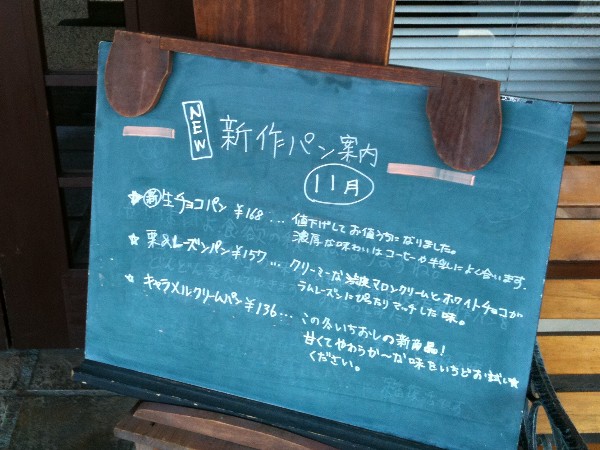 NEW
新作パン案内
11月
★新生チョコパン ¥168… 値下げしてお値うちになりました。
濃厚な味わいはコーヒーや牛乳によく合います。
★栗&レーズンパン ¥157… クリーミーな渋皮マロンクリームとホワイトチョコが
ラムレーズンにぴったりマッチした味。
★キャラメルクリームパン ¥136… この冬いちおしの新商品!
甘くてやわらか〜な味をいちどお試し★
ください。